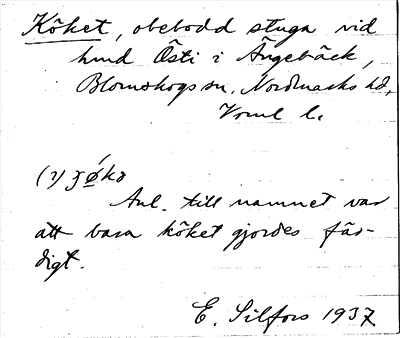 Köket, obebodd stuga vid
hmd Östi i Ängebäck,
Blomskogs sn, Nordmarks hd,
Vrml l.
Anl. till namnet var
att bara köket gjordes fär-
digt.
E. Silfors 1937